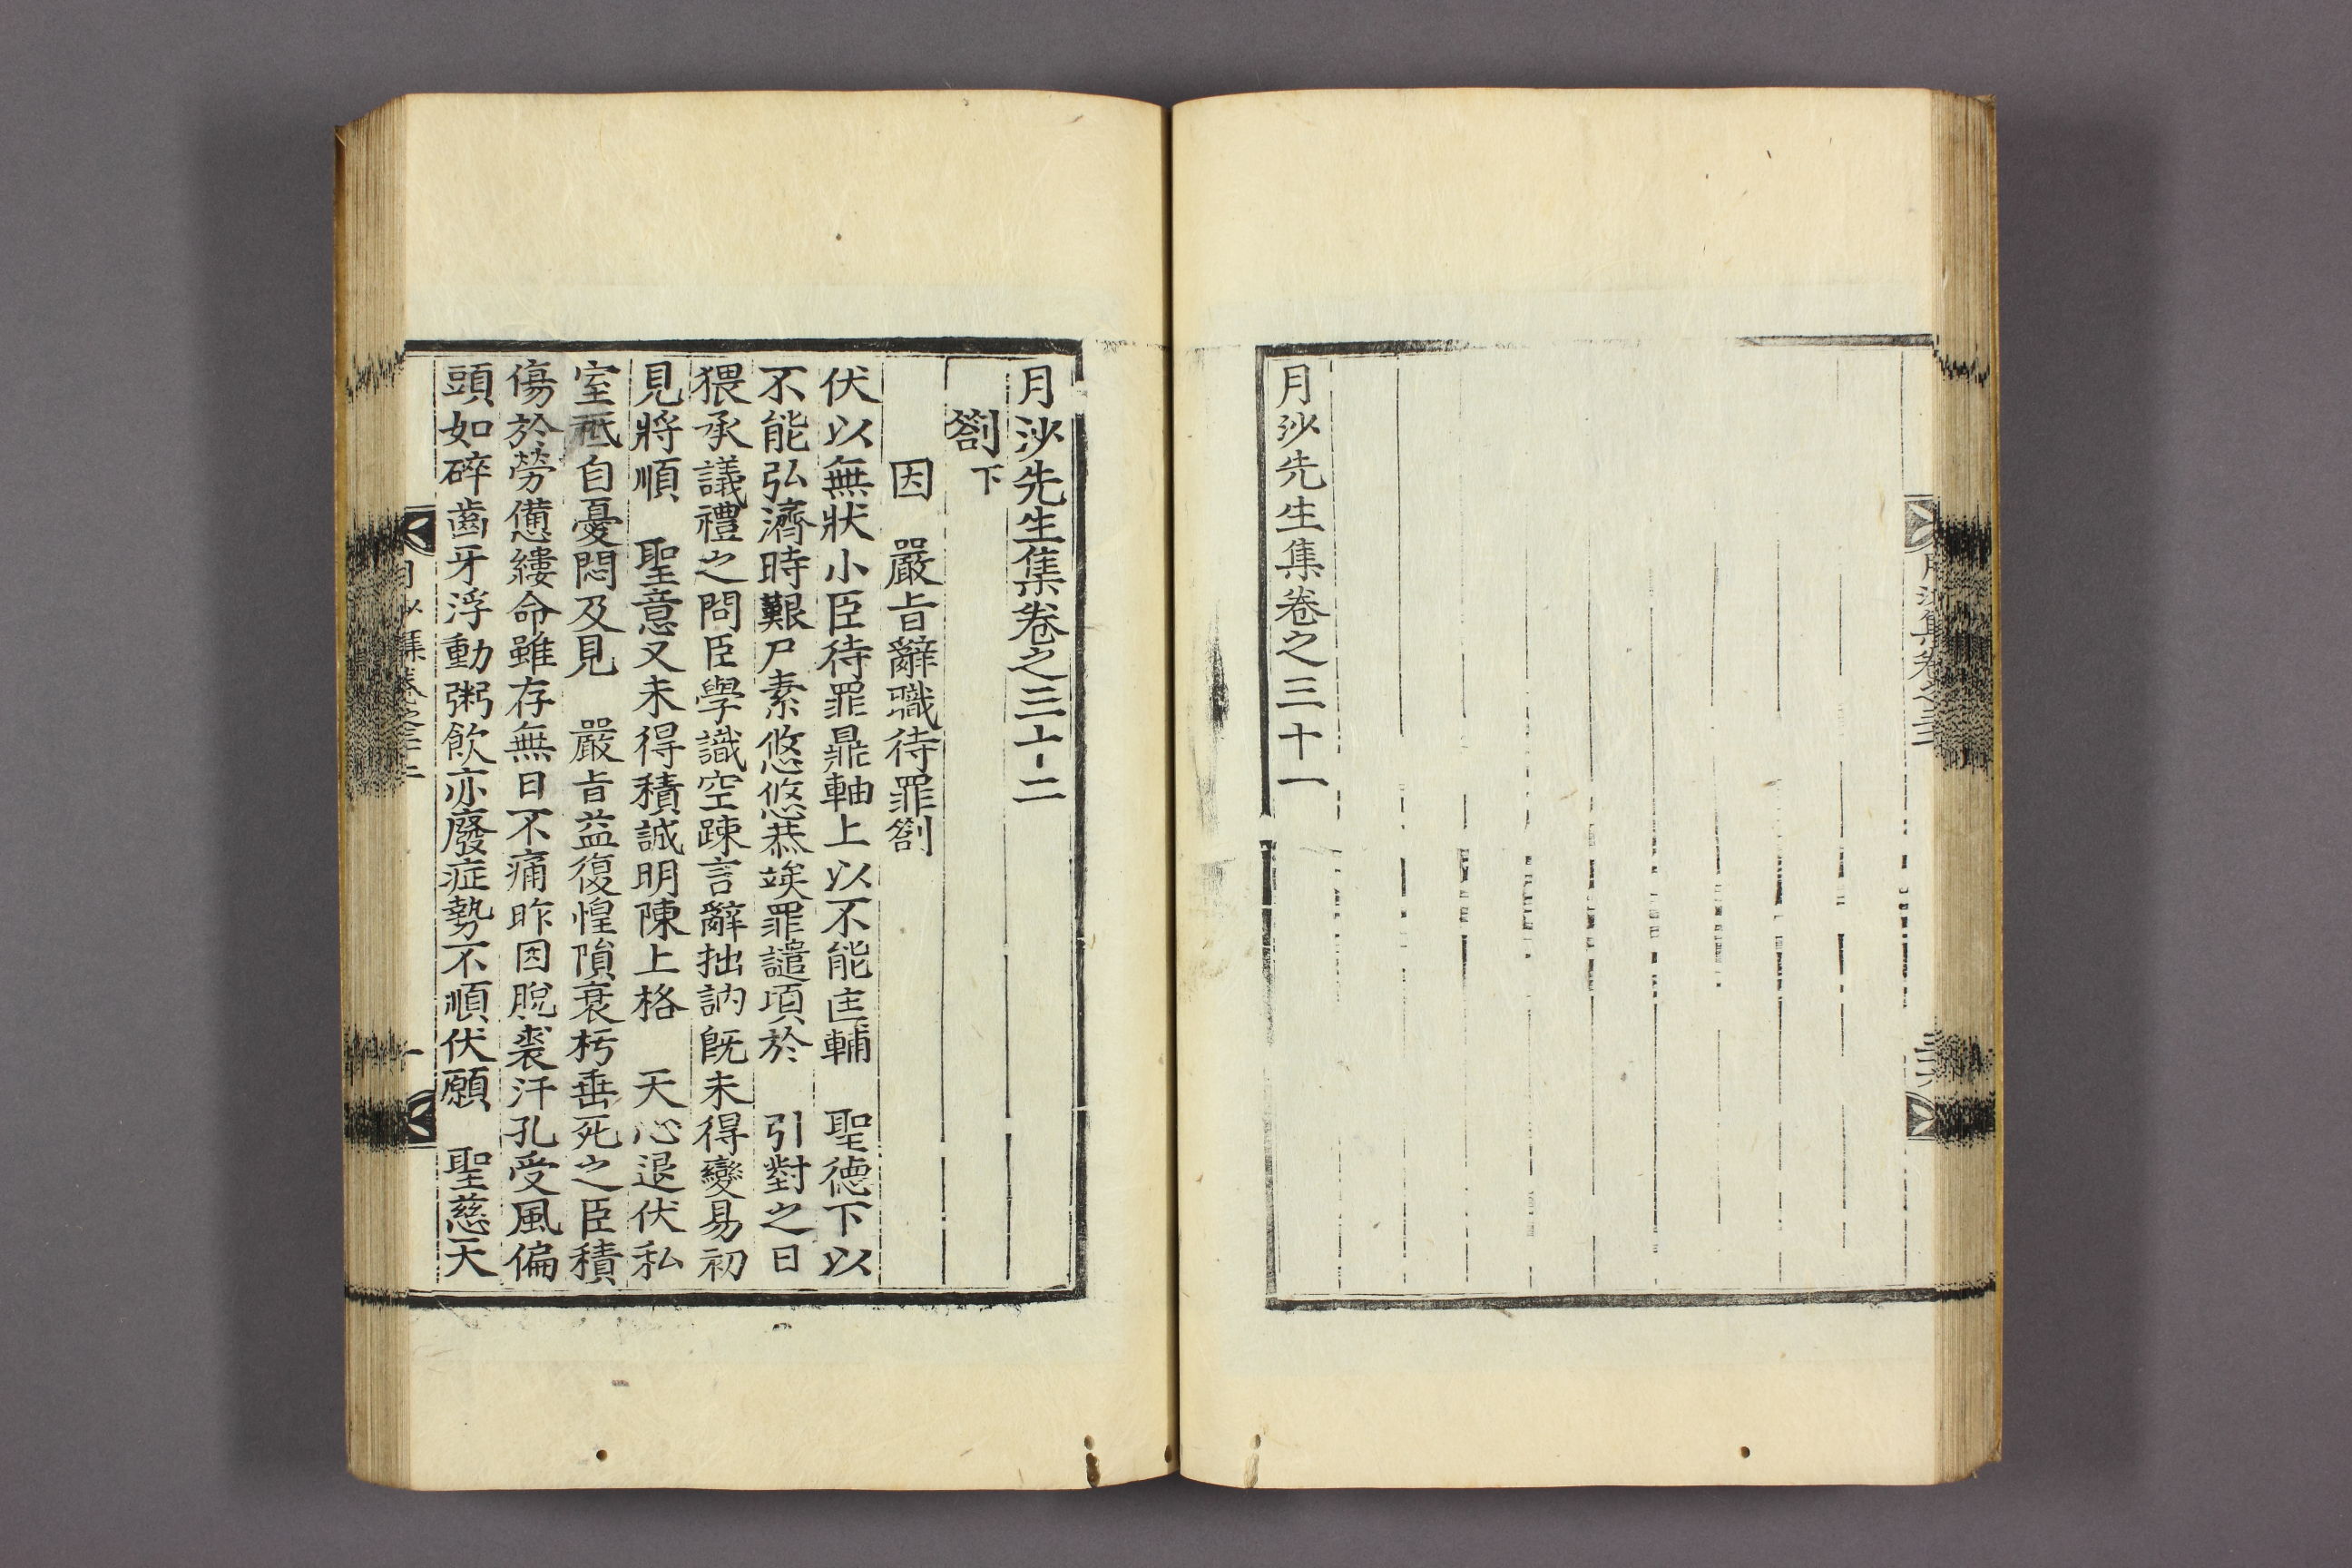 月沙先生集卷之三十一
月沙先生集卷之三十二
劄下
因　嚴旨辭職待罪劄
伏以無狀小臣待罪鼎軸上以不能匡輔　聖德下以
不能弘濟時艱尸素悠悠恭竢罪譴頃於　引對之日
猥承議禮之問臣學識空踈言辭拙訥旣未得變易初
見將順　聖意又未得積誠明陳上格　天心退伏私
室秪自憂悶及見　嚴旨益復惶隕衰朽垂死之臣積
傷於勞憊縷命雖存無日不痛昨因脫裘汗孔受風偏
頭如碎齒牙浮動粥飮亦廢症勢不順伏願　聖慈天